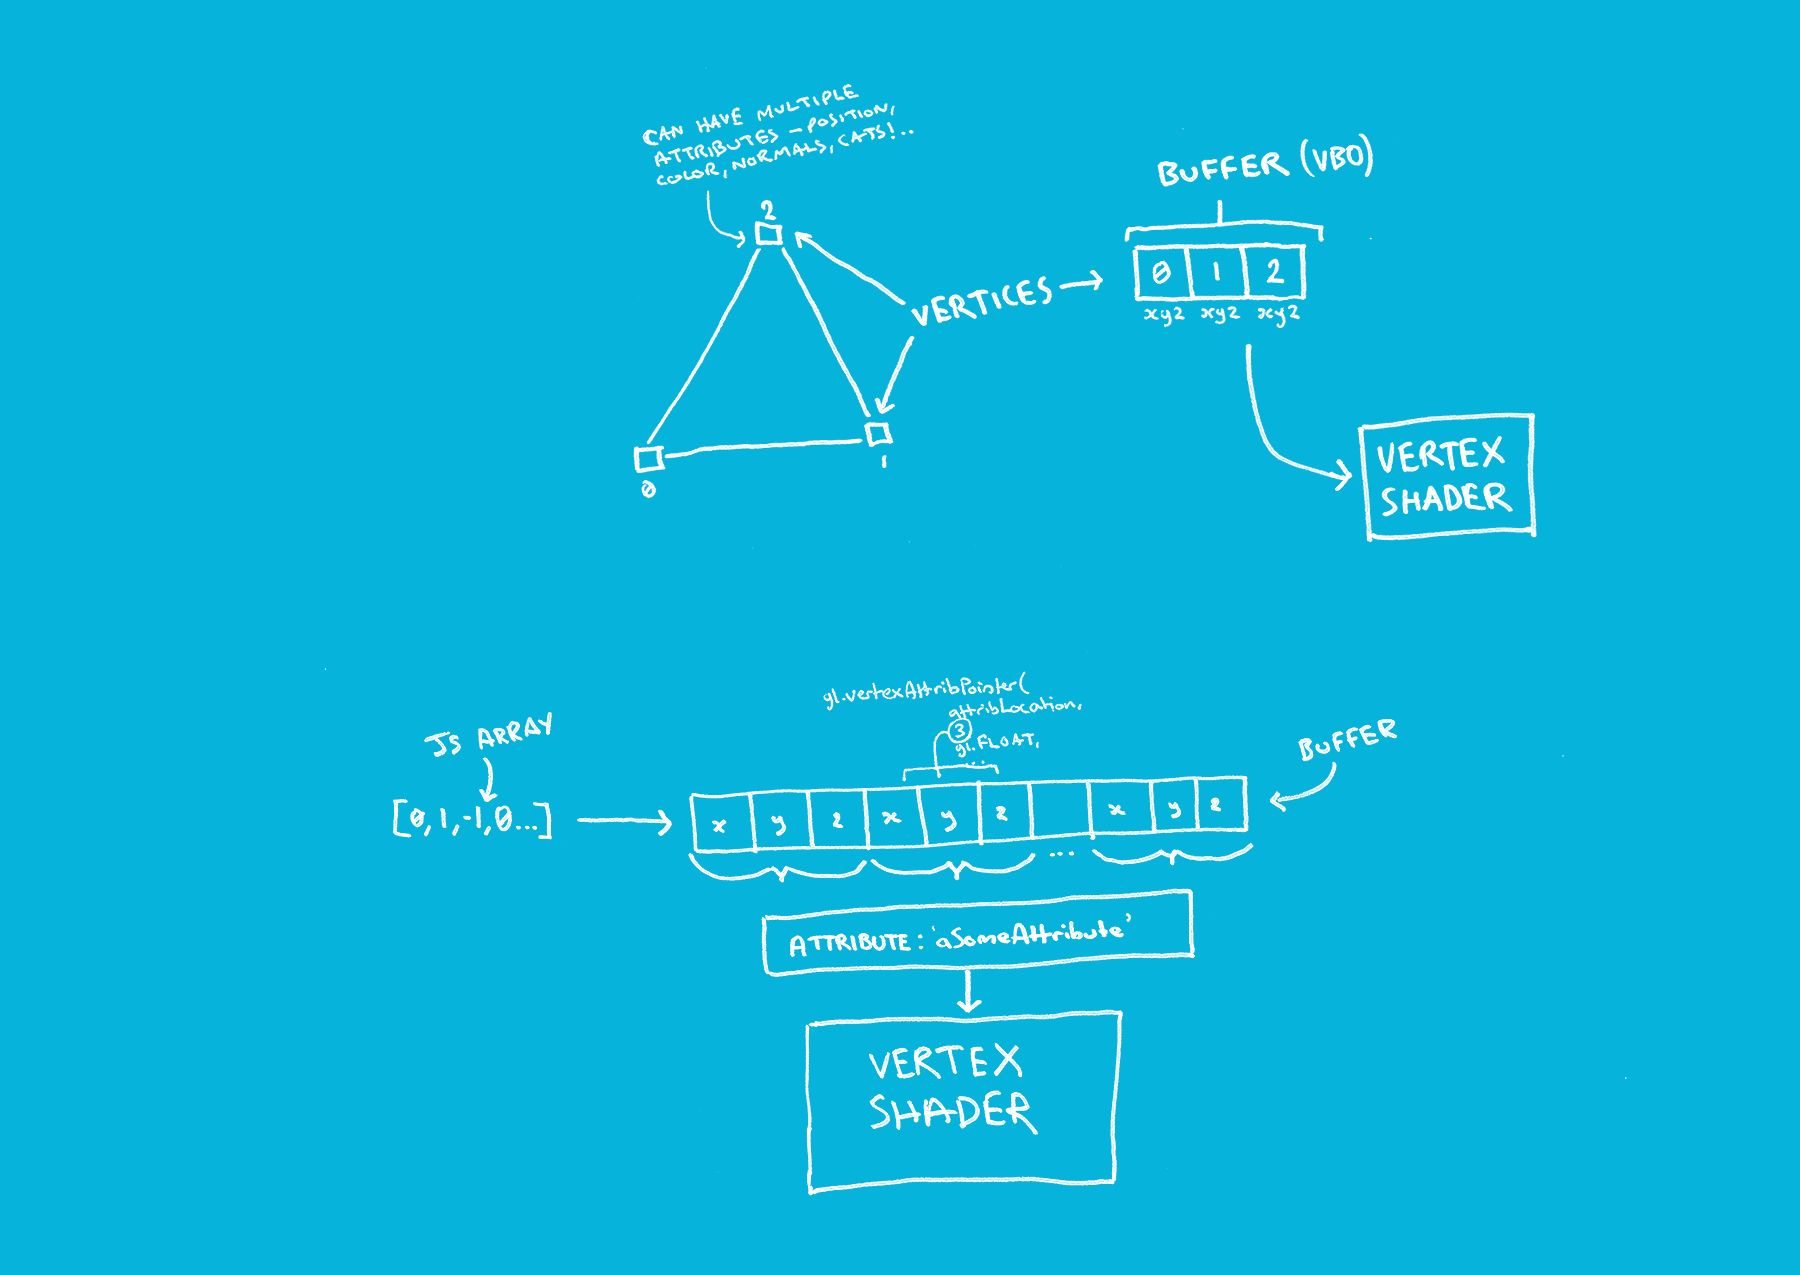 CAN HAVE MULTIPLE
ATTRIBUTES - POSITION,
COLOR, NORMALS, CATS!..
2
0
1
VERTICES
BUFFER (VBO)
0 1 2
xyz xyz xyz
VERTEX
SHADER
gl.vertexAttribPointer(
attribLocation,
3
gl.FLOAT,
...
JS ARRAY
[0,1,-1,0...]
BUFFER
x y z x y z x y z
...
ATTRIBUTE: 'aSomeAttribute'
VERTEX
SHADER